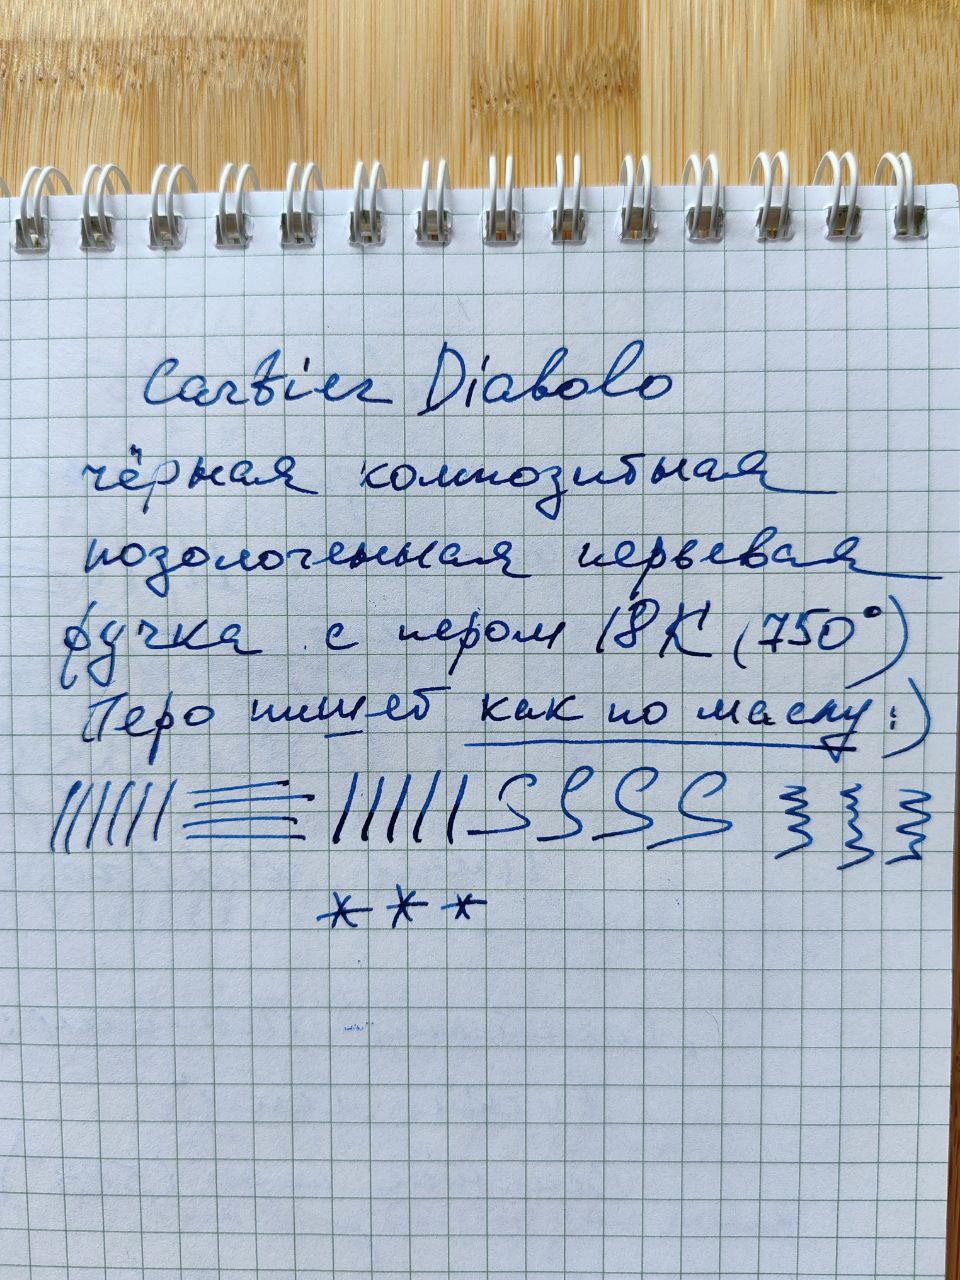 Cartier Diabolo
чёрная композитная
позолоченная перьевая
ручка с пером 18К (750°)
Перо пишет как по маслу :)
* * *